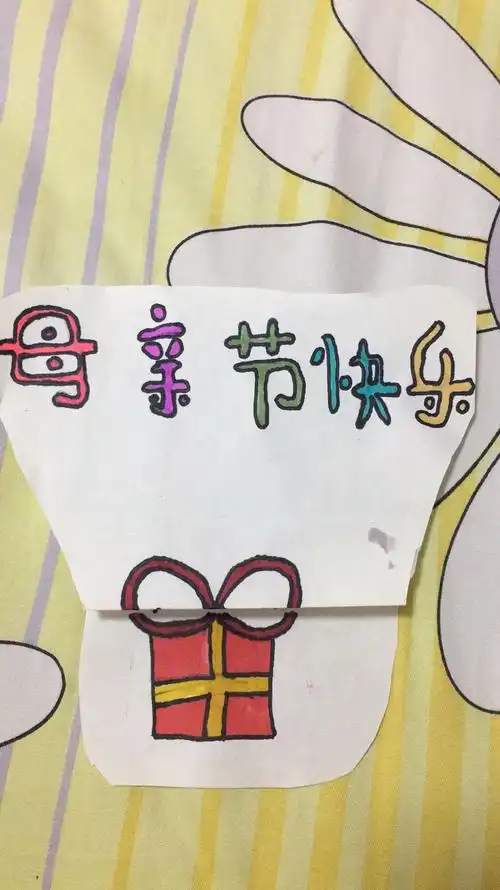 母亲节快乐